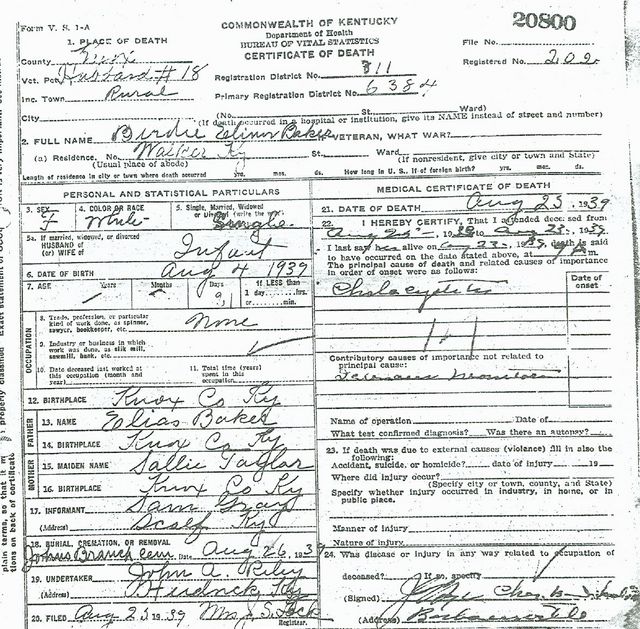 Form V. S. 1-A
COMMONWEALTH OF KENTUCKY
Department of Health
BUREAU OF VITAL STATISTICS
CERTIFICATE OF DEATH
20800
File No.
Registered No. 202
1. PLACE OF DEATH
County Knox
Vot. Pct. Hubbard #18
Inc. Town Rural
City
Registration District No. 811
Primary Registration District No. 6384
(No. St. Ward)
(If death occurred in a hospital or institution, give its NAME instead of street and number)
2. FULL NAME Birdie Elinor Baker VETERAN, WHAT WAR?
(a) Residence. No. Walker Ky St. Ward
(Usual place of abode) (If nonresident, give city or town and State)
Length of residence in city or town where death occurred yrs. mos. ds. How long in U. S., if of foreign birth? yrs. mos. ds.
PERSONAL AND STATISTICAL PARTICULARS
3. SEX F
4. COLOR OR RACE White
5. Single, Married, Widowed or Divorced (write the word) Single
5a. If married, widowed, or divorced
HUSBAND of
(or) WIFE of Infant
6. DATE OF BIRTH Aug 4 1939
7. AGE Years Months Days If LESS than
1 day hrs.
or min.
OCCUPATION
8. Trade, profession, or particular kind of work done, as spinner, sawyer, bookkeeper, etc. None
9. Industry or business in which work was done, as silk mill, sawmill, bank, etc.
10. Date deceased last worked at this occupation (month and year)
11. Total time (years) spent in this occupation
12. BIRTHPLACE Knox Co Ky
FATHER
13. NAME Elias Baker
14. BIRTHPLACE Knox Co Ky
MOTHER
15. MAIDEN NAME Sallie Taylor
16. BIRTHPLACE Knox Co Ky
17. INFORMANT Sam Gray
(Address) Scalf Ky
18. BURIAL, CREMATION, OR REMOVAL
Johns Branch Cem. Date Aug 26 1939
19. UNDERTAKER John A. Riley
(Address) Ky
20. FILED Aug 25 1939 Mrs
Registrar.
MEDICAL CERTIFICATE OF DEATH
21. DATE OF DEATH Aug 25, 1939
22. I HEREBY CERTIFY, That I attended deceased from
Aug 1939 to Aug 1939
I last saw her alive on Aug 23, 1939, death is said
to have occurred on the date stated above, at m.
The principal cause of death and related causes of importance
in order of onset were as follows:
Date of onset
Contributory causes of importance not related to
principal cause:
Name of operation Date of
What test confirmed diagnosis? Was there an autopsy?
23. If death was due to external causes (violence) fill in also the
following:
Accident, suicide, or homicide? date of injury 19
Where did injury occur?
(Specify city or town, county, and State)
Specify whether injury occurred in industry, in home, or in
public place.
Manner of injury
Nature of injury
24. Was disease or injury in any way related to occupation of
deceased? If so, specify
(Signed)
(Address) Barbourville